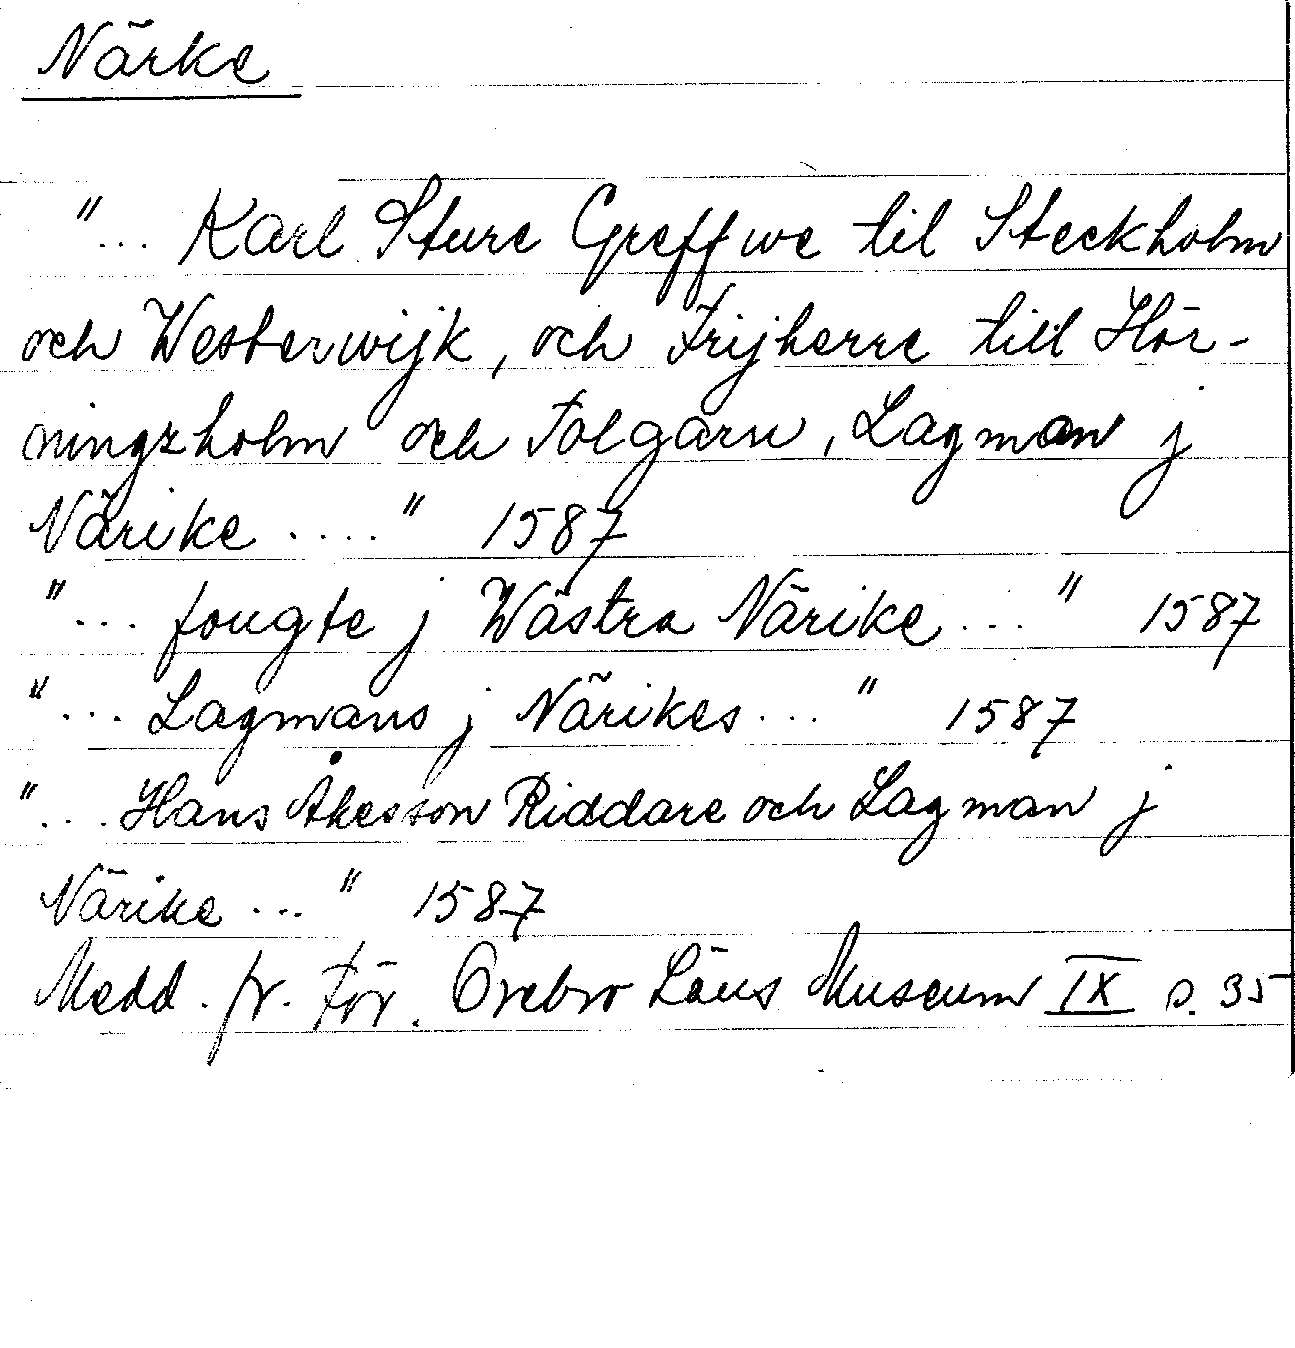 Närke
"... Karl Sture Greffwe til Steckholm
och Westerwijk, och Frijherre till Hör-
ningzholm och Folgarn, Lagman j
Närike ...." 1587
"... fougte j Wästra Närike ..." 1587
"... Lagmans j Närikes ..." 1587
"... Hans Åkesson Riddare och Lagman j
Närike ..." 1587
Medd. fr. För. Örebro Läns Museum IX s. 35